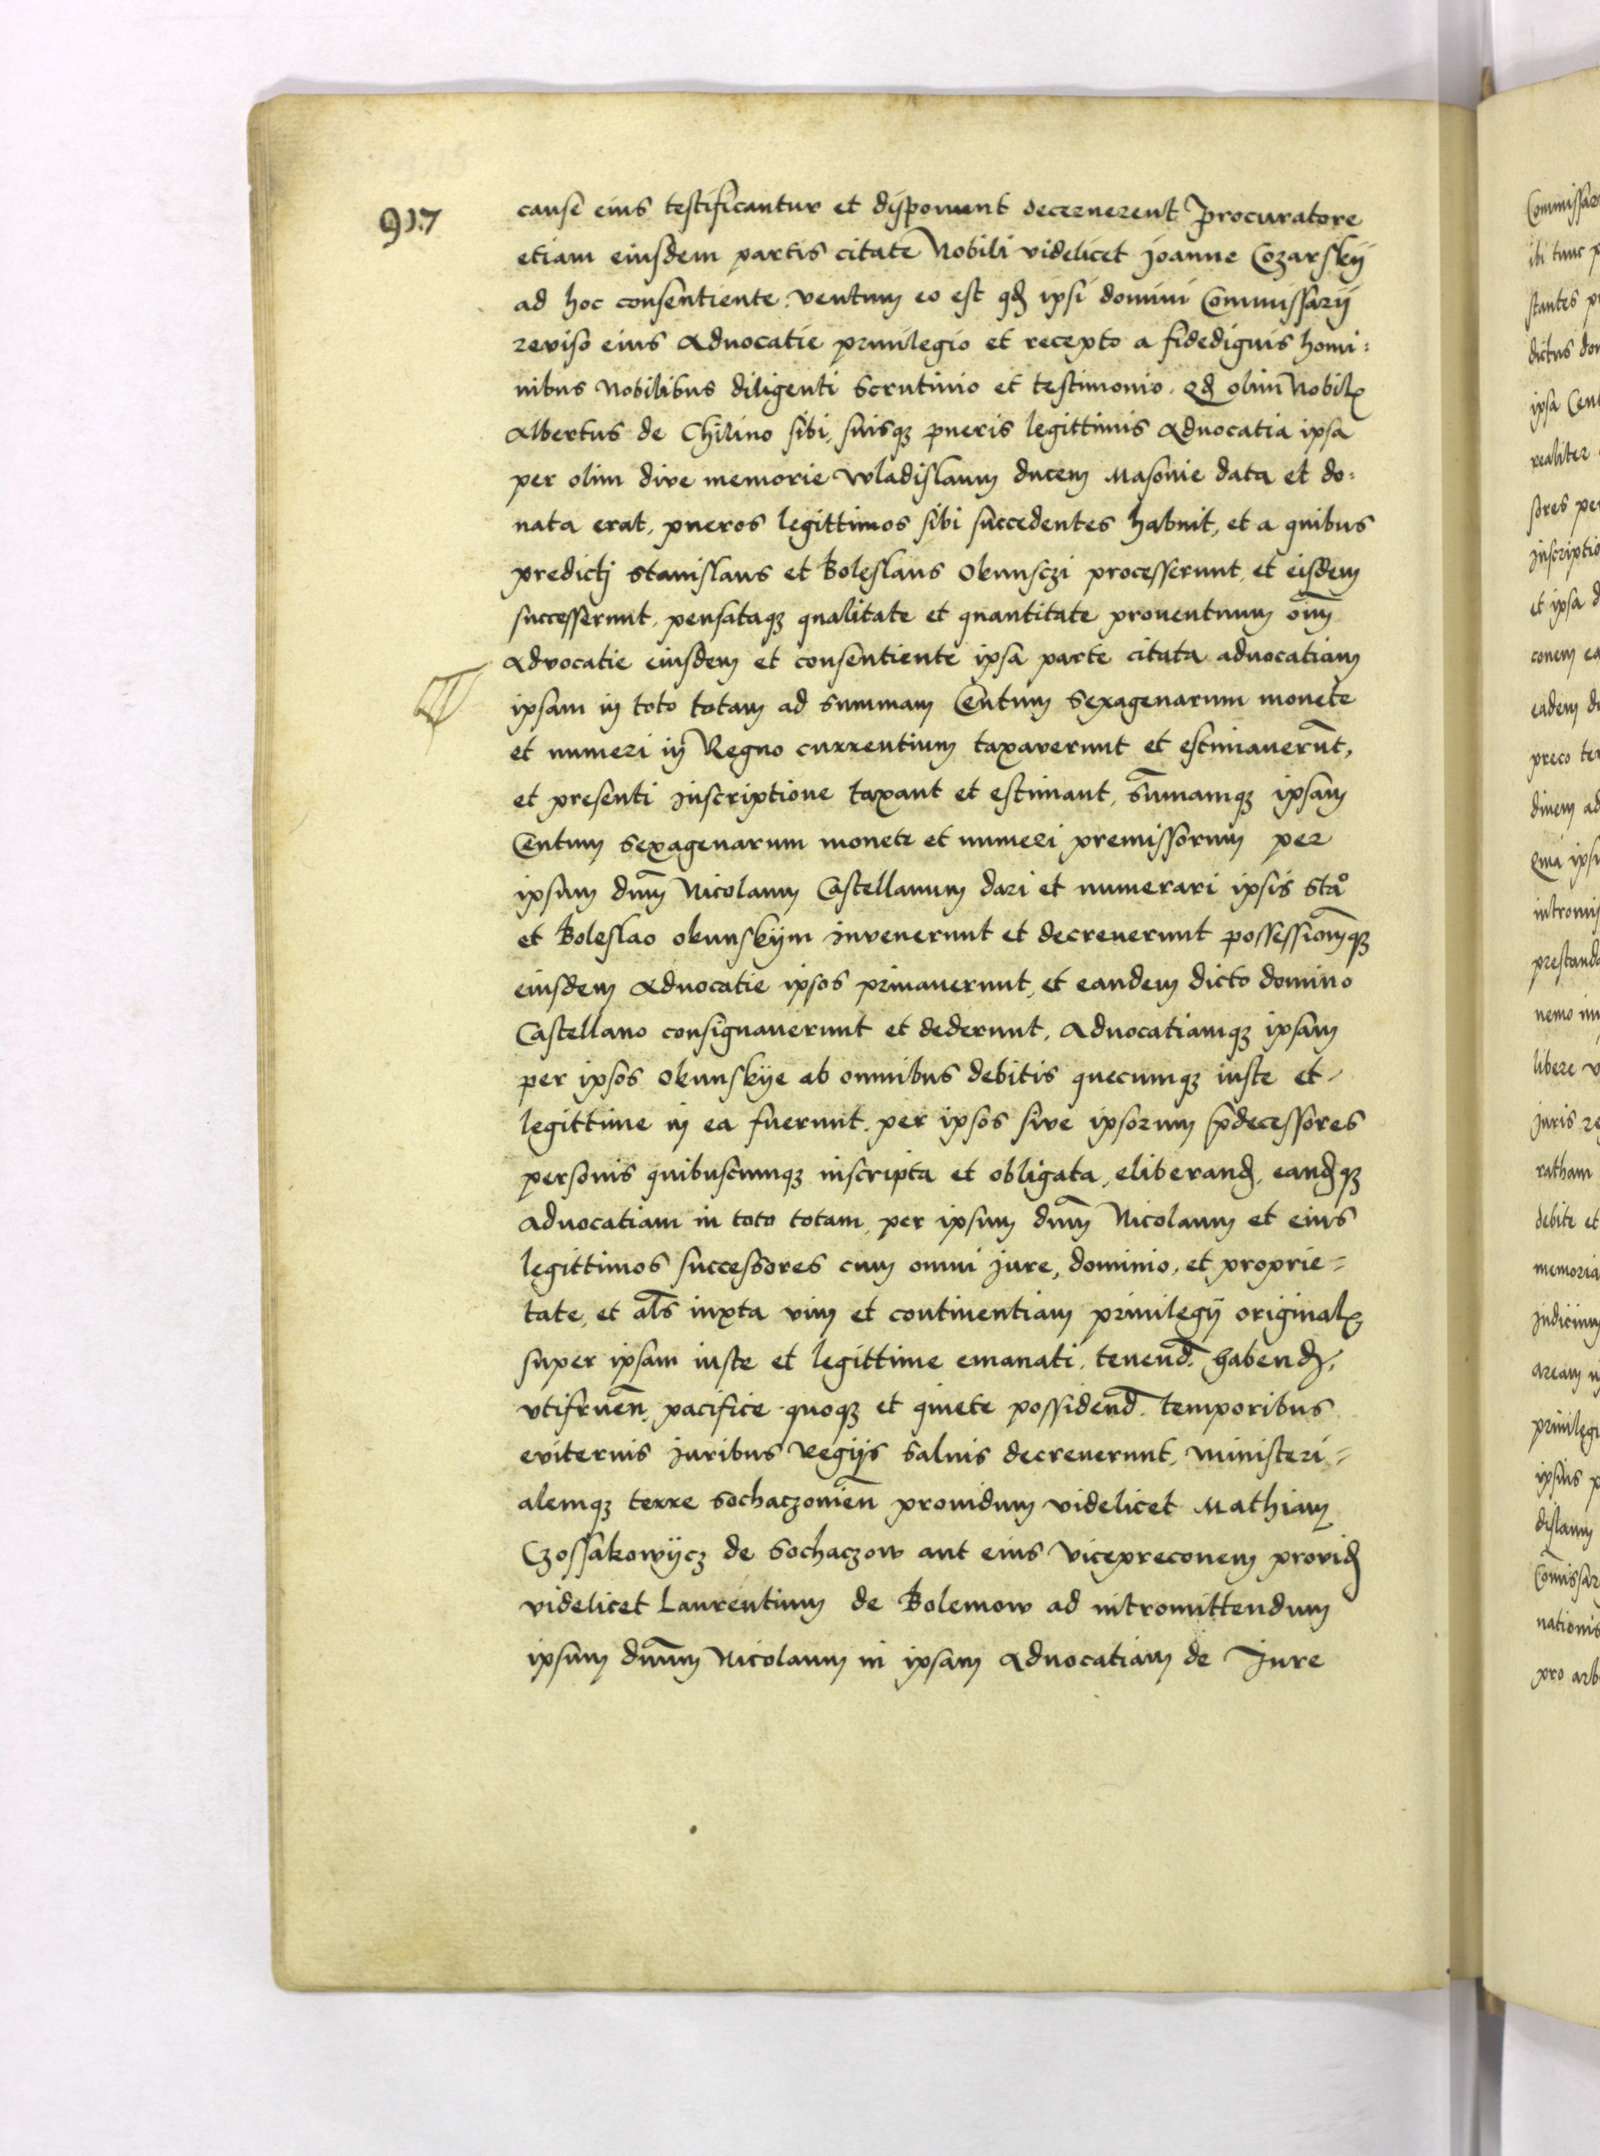 917
cause eius testificantur et disponunt decernerent Procuratore
etiam eiusdem partis citate Nobili videlicet Joanne Cozarskij
ad hoc consentiente ventum eo est qd ipsi domini Commissarij
reviso eius Advocatie privilegio et recepto a fidedignis homi:
nibus Nobilibus diligenti Scrutinio et testimonio. Qd olim Nobilꝭ
Albertus de sibi, suisqꝫ pueris legittimis Advocatia ipsa
per olim dive memorie Wladislaum ducem Masovie data et do:
nata erat, pueros legittimos sibi succedentes habuit, et a quibus
predictj Stanislaus et Boleslaus Okunsczi processerunt, et eisdem
successerunt, pensataqꝫ qualitate et quantitate proventuum oīm
Advocatie eiusdem et consentiente ipsa parte citata advocatiam
ipsam in toto totam ad summam Centum Sexagenarum monete
et numeri in Regno currentium taxaverunt et estimaverūt,
et presenti Inscriptione taxant et estimant, Sūmamqꝫ ipsam
Centum Sexagenarum monete et numeri premissorum per
ipsum dnm̄ Nicolaum Castellanum dari et numerari ipsis Staº
et Boleslao Okunskijm invenerunt et decreverunt possessionēqꝫ
eiusdem Advocatie ipsos privaverunt, et eandem dicto domino
Castellano consignaverunt et dederunt, Advocatiamqꝫ ipsam
per ipsos Okunskije ab omnibus debitis quecumqꝫ iuste et
legittime in ea fuerunt, per ipsos sive ipsorum p̄decessores
personis quibuscumqꝫ inscripta et obligata, eliberand, eandqꝫ
advocatiam in toto totam, per ipsum dnm̄ Nicolaum et eius
legittimos successores cum omni jure, dominio, et proprie=
tate, et als̄ iuxta vim et continentiam privilegij originalꝭ
super ipsam iuste et legittime emanati, tenend̄ habend,
utifruen̄, pacifice quoqꝫ et quiete possidend̄. temporibus
eviternis juribus Regijs Salvis decreverunt, Ministeri=
alemqꝫ terre Sochaczovien̄ providum videlicet Mathiam
Czossakowijcz de Sochaczow aut eius Vicepreconem provid
videlicet Laurentium de Bolemow ad intromittendum
ipsum dnūm Nicolaum in ipsam Advocatiam de Jure